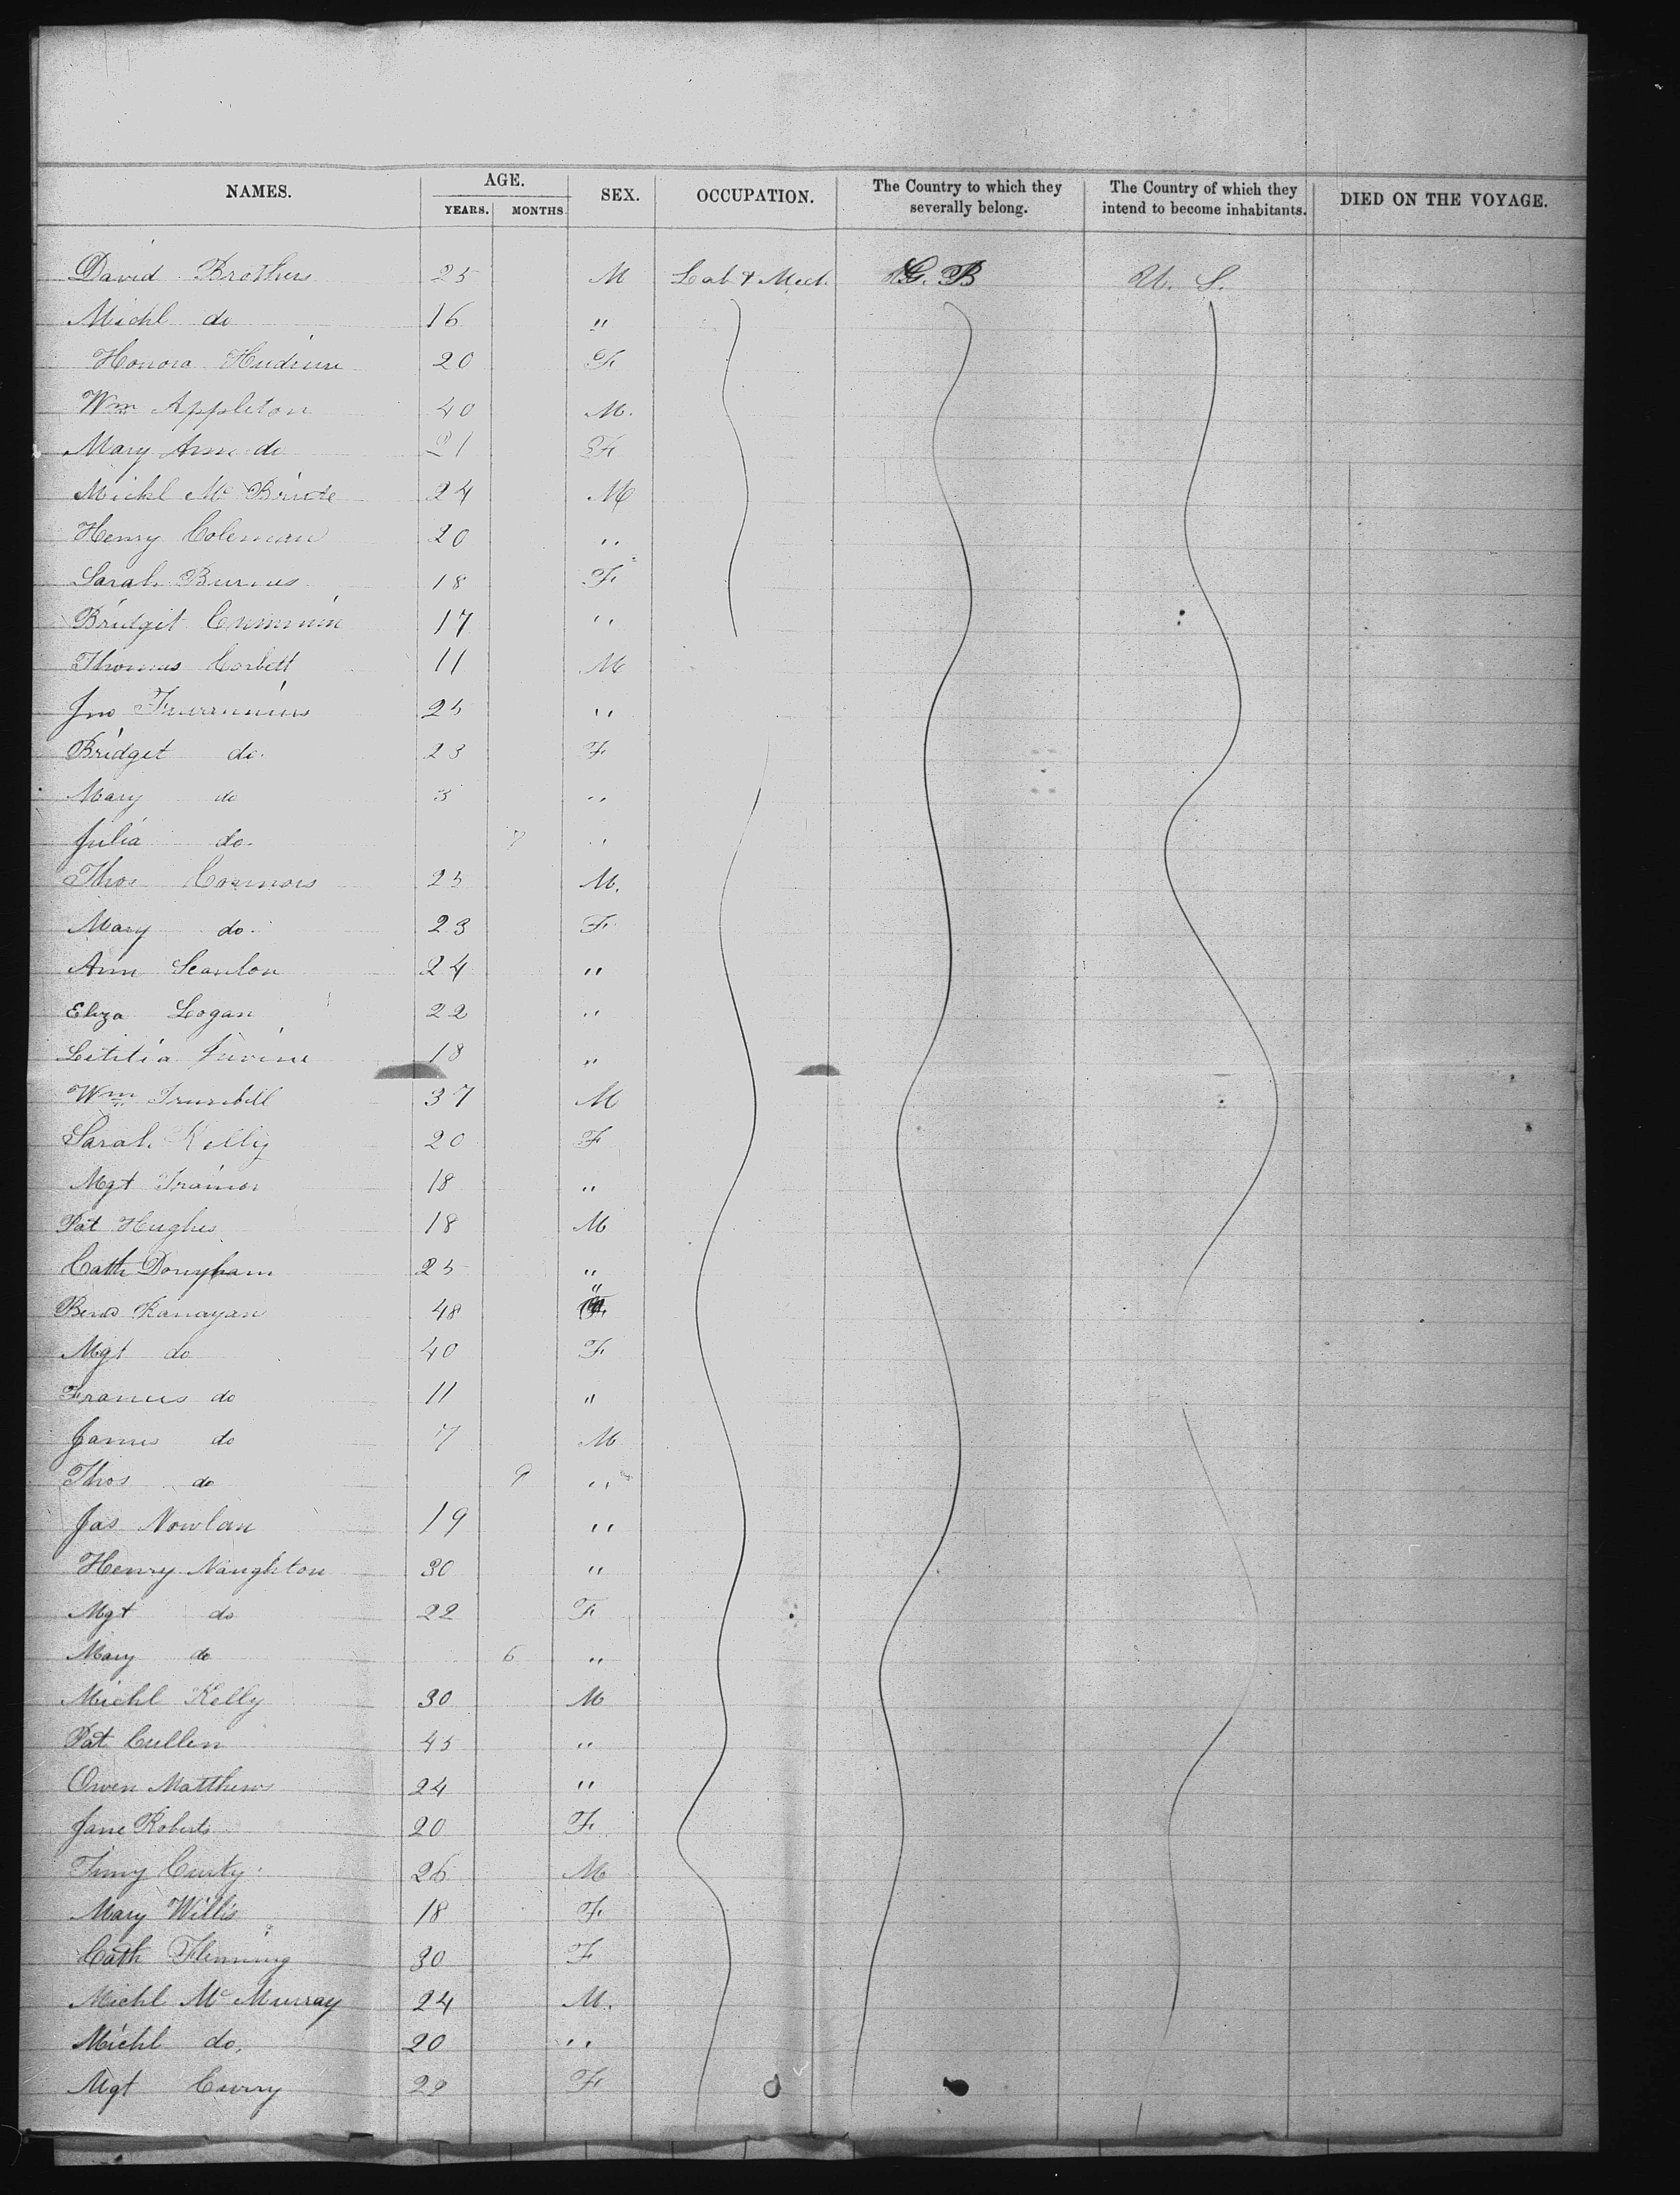 NAMES. AGE. SEX. OCCUPATION. The Country to which they severally belong. The Country of which they intend to become inhabitants. DIED ON THE VOYAGE.
YEARS. MONTHS
David Brothers 25 M Lab & Mech. G. B U. S.
Michl do 16 "
Honora 20 F
Wm Appleton 40 M.
Mary Ann do 21 F
Michl Mc Bride 24 M
Henry Coleman 20 "
Sarah Burns 18 F
Bridget 17 "
Thomas Corbett 11 M
Jno 25 "
Bridget do. 23 F
Mary do 3 "
Julia do. 7 "
Thos Connors 25 M.
Mary do. 23 F
Ann Scanlon 24 "
Eliza Logan 22 "
Letitia 18 "
Wm 37 M
Sarah Kelly 20 F
Mgt Trainor 18 "
Pat Hughes 18 M
Cath 25 "
48 "
Mgt do 40 F
Francis do 11 "
James do 7 M
Thos do 9 "
Jas Nowlan 19 "
Henry Naughton 30 "
Mgt do 22 F
Mary do 6 "
Michl Kelly 30 M
Pat Cullen 45 "
Owen Matthews 24 "
Jane Roberts 20 F
26 M
Mary Willis 18 F
Cath Fleming 30 F
Michl Mc Murray 24 M.
Michl do. 20 "
Mgt 29 F